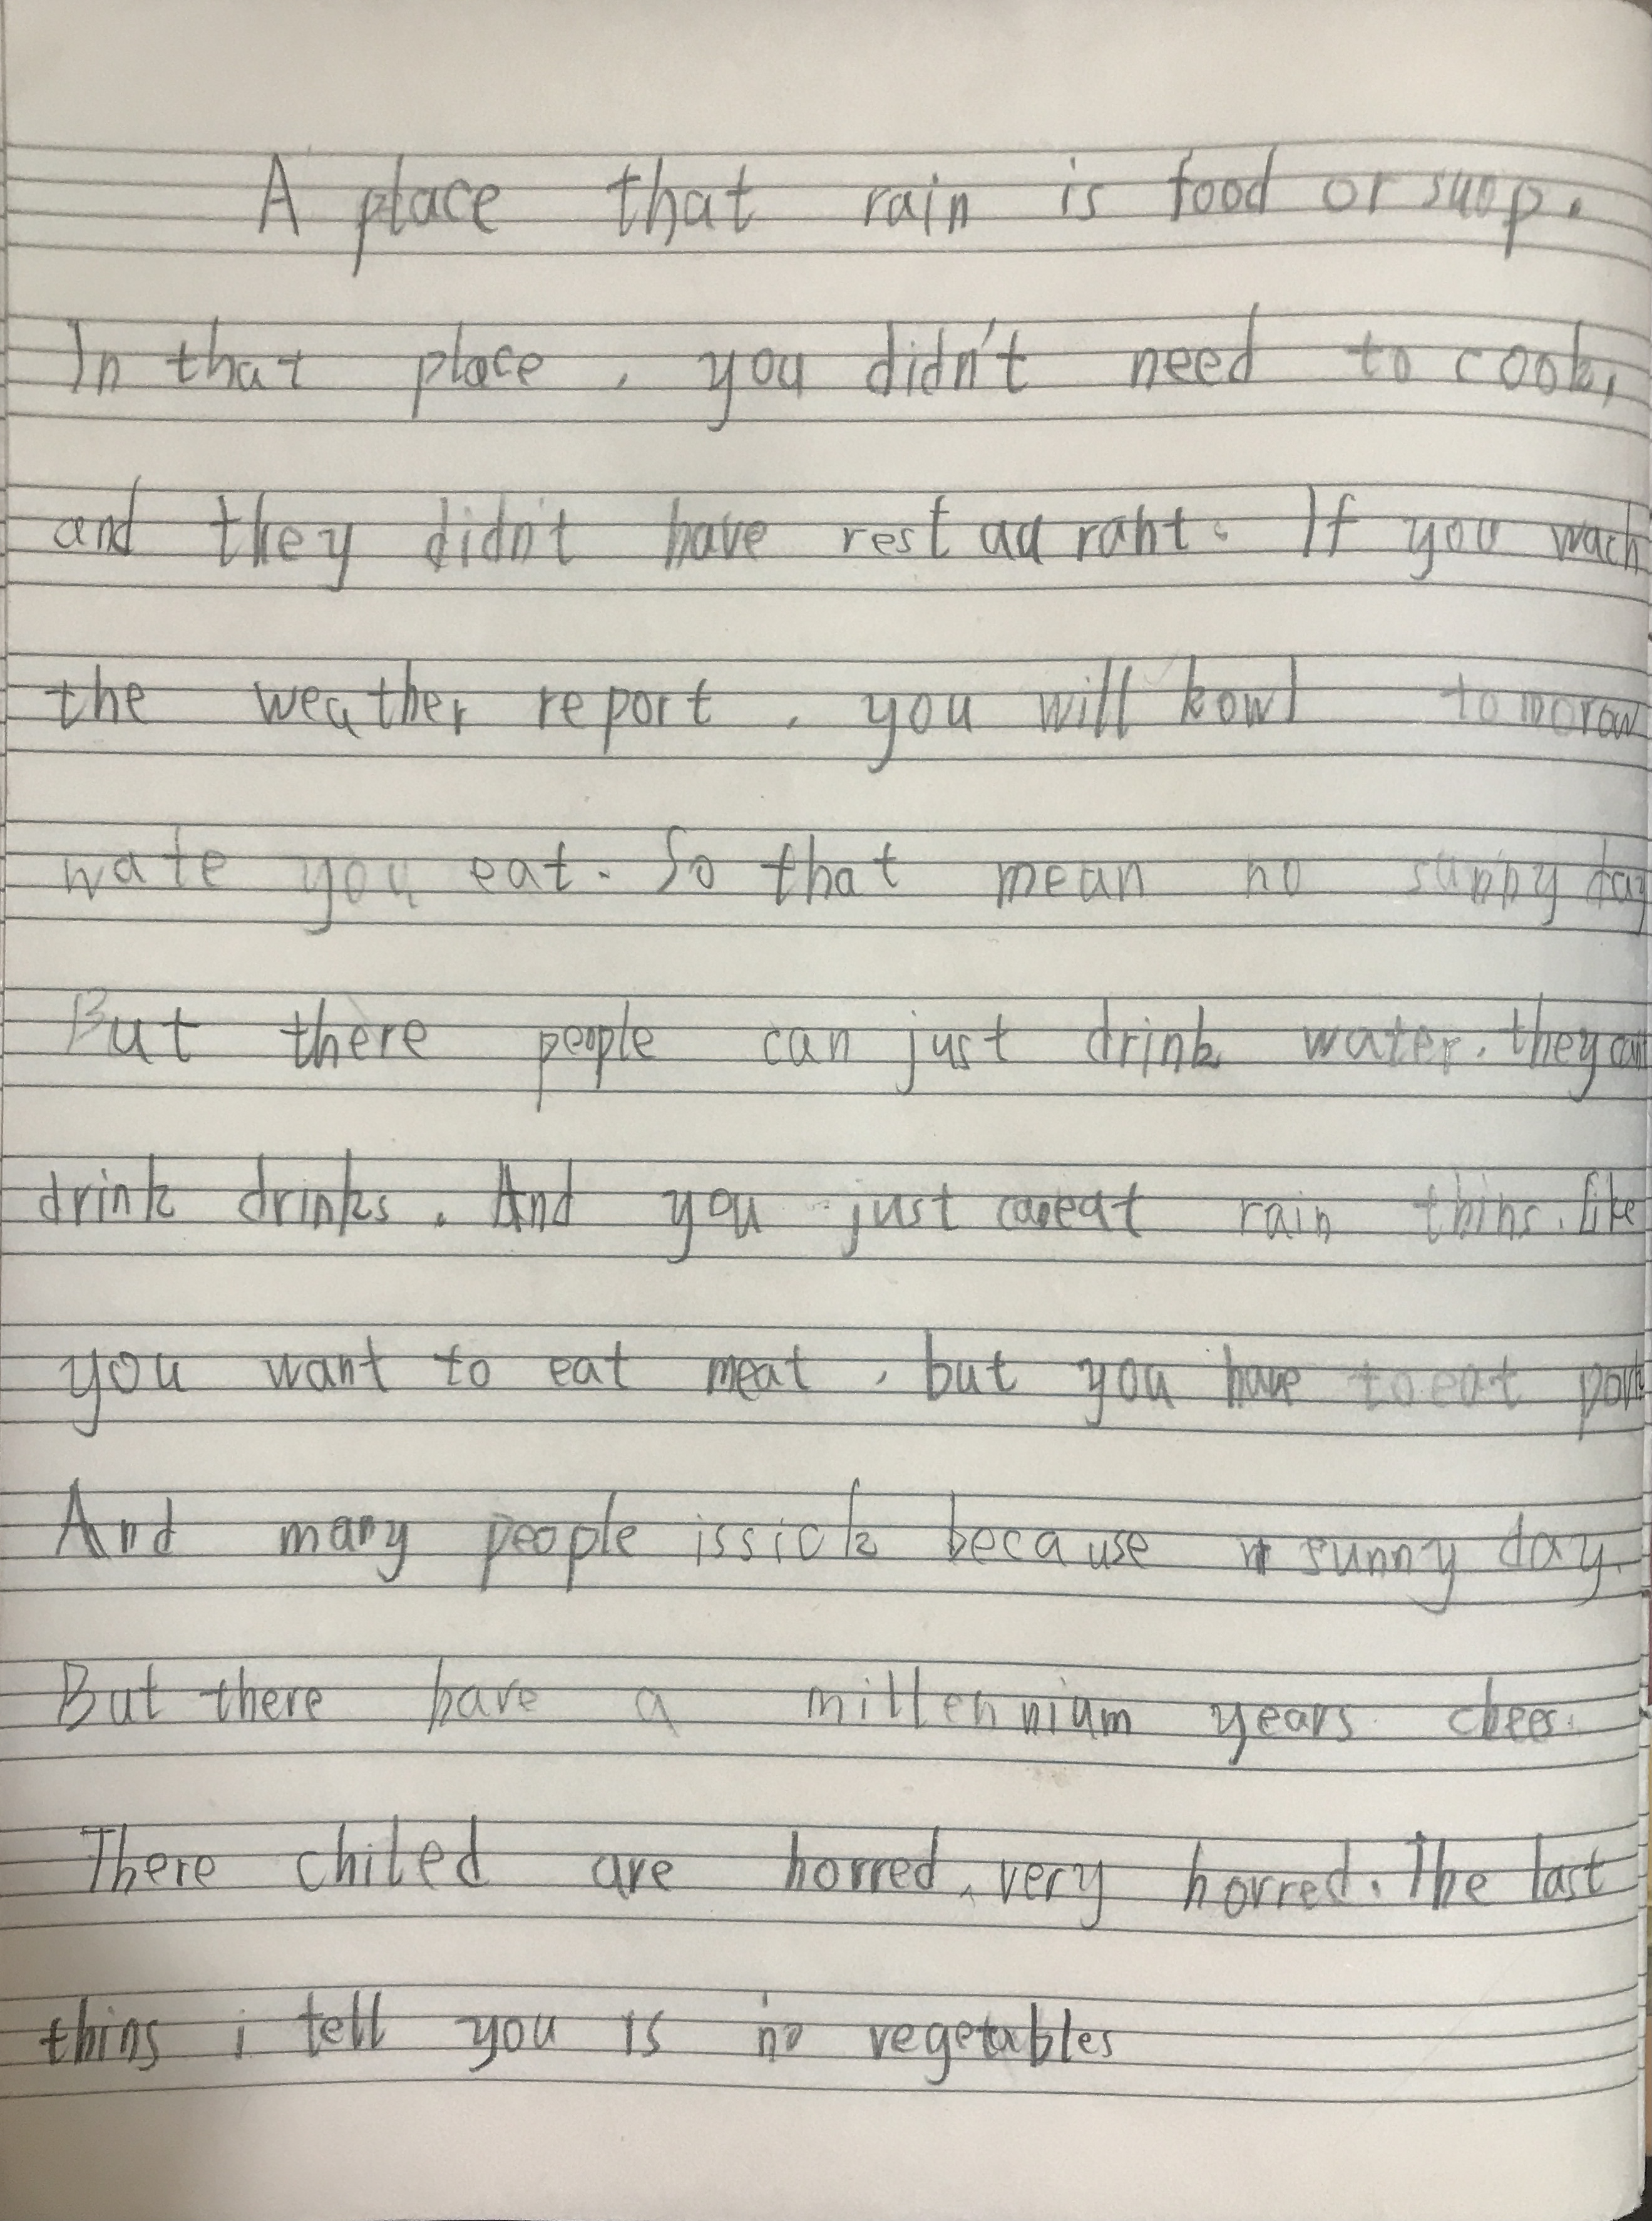 A place that rain is food or suop.
In that place, you didn't need to cook,
and they didn't have restauraht. If you wach
the weather report, you will kowl tomorow
wate you eat. So that mean no sunny day
But there people can just drink water. they can't
drink drinks. And you just can eat rain thins. like
you want to eat meat, but you have to eat pork
And many people is sick because sunny day.
But there have a millennium years chees.
There chiled are horred, very horred. The last
thins i tell you is no vegetables